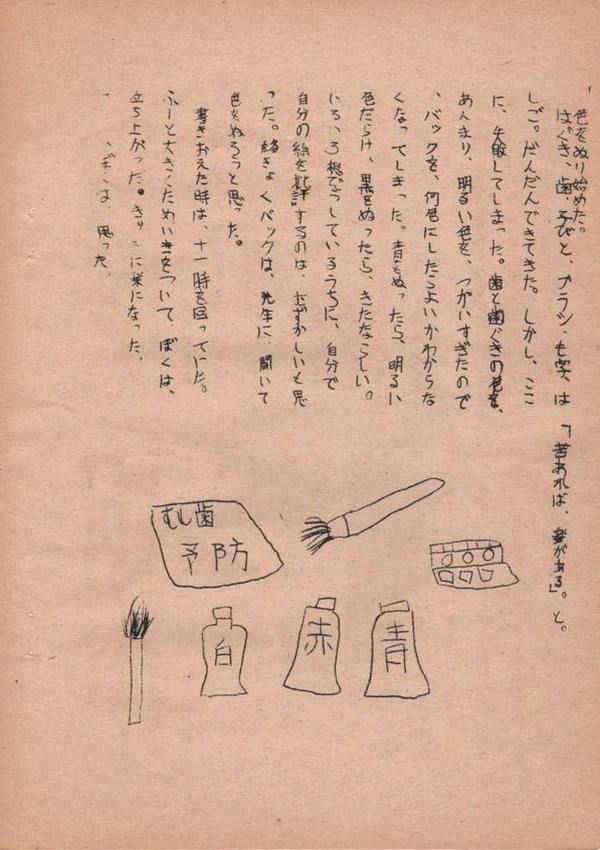 色をぬり始めた。
はぐき、歯、子びと、ブラシ、もう実、は
「苦あれば、楽がある」。と。
しご。だんだんできてきた。しかし、ここ
に、失敗してしまった。歯と歯ぐきの色を、
あんまり、明るい色を、つかいすぎたので
、バックを、何色にしたらよいかわからな
くなってしまった。青をぬったら、明るい
色だらけ、黒をぬったら、きたならしい。
いろいろ想ぞうしているうちに、自分で
自分の絵を批評するのは、むずかしいと思
った。結きょくバックは、先生に、聞いて
色をぬろうと思った。
書きおえた時は、十一時を回っていた。
ふーと大きくためいきをついて、ぼくは、
立ち上がった。きゅうに楽になった。
は、思った。
むし歯
予防
白
赤
青